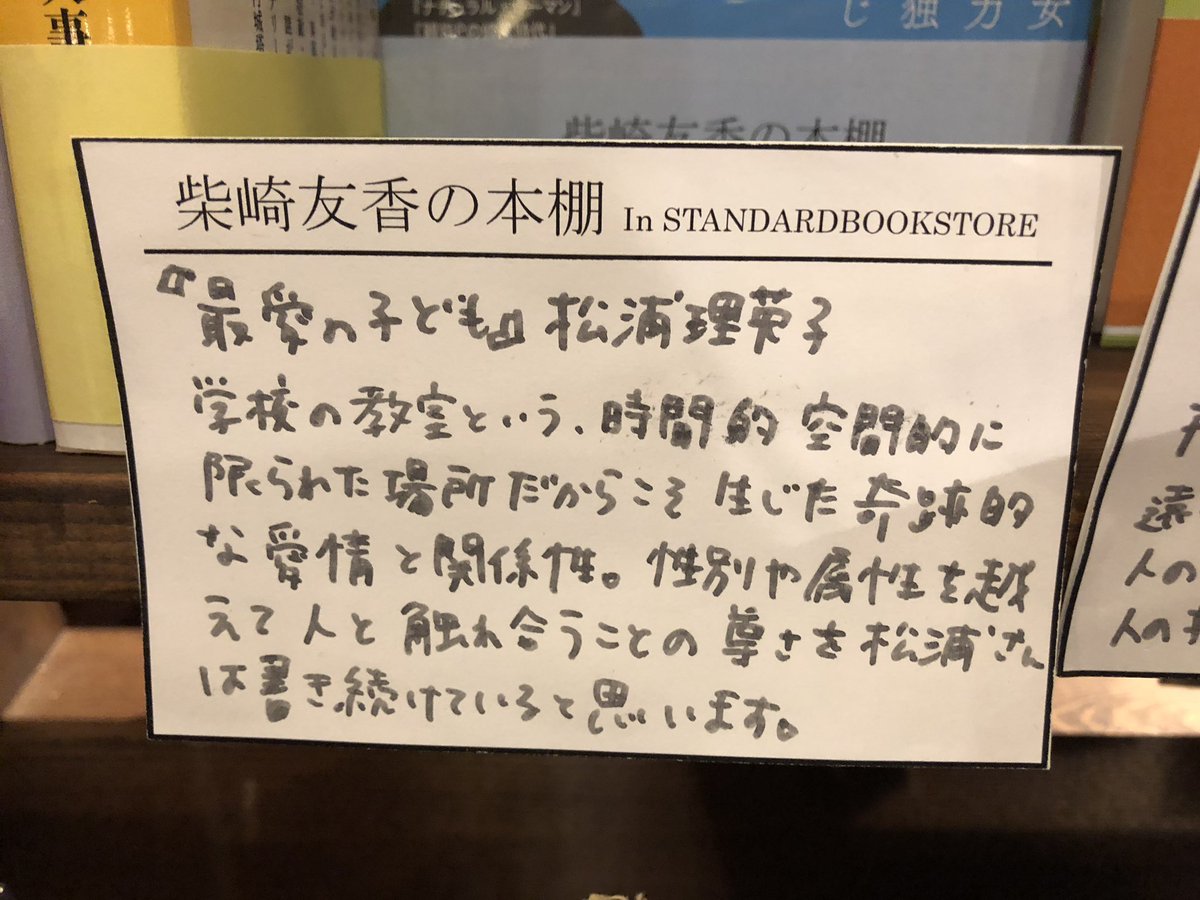 女
力
独
じ
事
『ナチュラル・ウーマン』
柴崎友香の本棚
柴崎友香の本棚 In STANDARDBOOKSTORE
『最愛の子ども』 松浦理英子
学校の教室という、時間的 空間的に
限られた場所だからこそ 生じた奇跡的
な愛情と関係性。性別や属性を越
えて人と触れ合うことの尊さを松浦さん
は書き続けていると思います。
遠
人の
人の